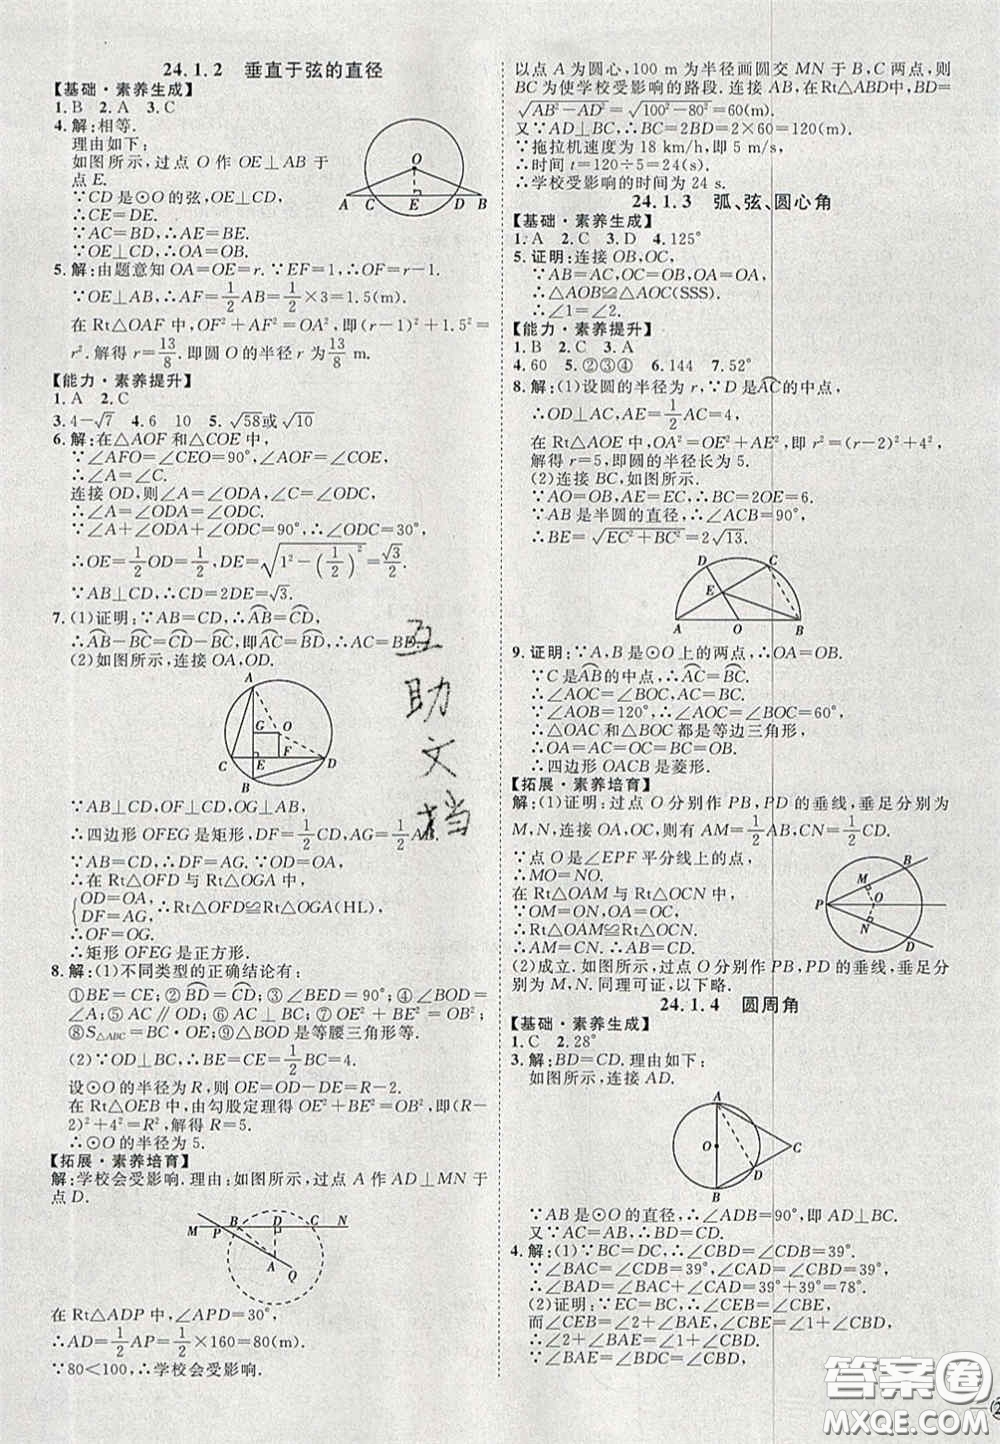 24.1.2 垂直于弦的直径
【基础·素养生成】
1. B 2. A 3. C
4. 解:相等.
理由如下:
如图所示,过点 O 作 OE⊥AB 于
点 E.
∵CD 是⊙O 的弦,
∴CE=DE.
∵AC=BD,∴AE=BE.
∴OE 垂直平分 AB.∴OA=OB.
O
A C E D B
5. 解:由题意知 OA=OE=r.∵EF=1,∴OF=r-1.
∵OE⊥AB,∴AF=1/2AB=1/2×3=1.5(m).
在 Rt△OAF 中,OF²+AF²=OA²,即(r-1)²+1.5²=
r².解得 r=13/8,即圆 O 的半径 r 为13/8 m.
【能力·素养提升】
1. A 2. C
3. 4-√7 4. 6 10 5. √58或√10
6. 解:在△AOF 和△COE 中,
∵∠AFO=∠CEO=90°,∠AOF=∠COE,
∴∠A=∠C.
连接 OD,则∠A=∠ODA,∠C=∠ODC.
∴∠A=∠ODA=∠ODC.
∵∠A+∠ODA+∠ODC=90°,∴∠ODC=30°.
∴OE=1/2OD=1/2,DE=√(1²-(1/2)²)=√3/2.
∵AB⊥CD,∴CD=2DE=√3.
7. (1)证明:∵AB=CD,∴AB=CD.
∴AB-BC=CD-BC,即AC=BD,∴AC=BD.
(2)如图所示,连接 OA,OD.
A
G O
C E F D
B
∵AB⊥CD,OF⊥CD,OG⊥AB,
∴四边形 OFEG 是矩形,DF=1/2CD,AG=1/2AB.
∵AB=CD,∴DF=AG.
∴在 Rt△OFD 与 Rt△OGA 中,
{OD=OA, DF=AG. ∴Rt△OFD≌Rt△OGA(HL),
∴OF=OG.
∴矩形 OFEG 是正方形.
8. 解:(1)不同类型的正确结论有:
①BE=CE ②BD=CD ③∠BED=90° ④∠BOD=
∠A ⑤AC∥OD ⑥AC⊥BC ⑦OE²+BE²=OB²
⑧S△ABC=BC·OE ⑨△BOD 是等腰三角形等.
(2)∵OD⊥BC,∴BE=CE=1/2BC=4.
设⊙O 的半径为 R,则 OE=OD-DE=R-2.
在 Rt△OEB 中,由勾股定理得 OE²+BE²=OB²,即(R-
2)²+4²=R²,解得 R=5.
∴⊙O 的半径为 5.
【拓展·素养培育】
解:学校会受影响.理由:如图所示,过点 A 作 AD⊥MN 于
点 D.
M P B D C N
A
Q
在 Rt△ADP 中,∠APD=30°,
∴AD=1/2AP=1/2×160=80(m).
∵80<100,∴学校会受影响.
以点 A 为圆心,100 m 为半径画圆交 MN 于 B,C 两点,则
BC 为使学校受影响的路段.连接 AB,在Rt△ABD中,BD=
√(AB²-AD²)=√(100²-80²)=60(m).
又∵AD⊥BC,∴BC=2BD=2×60=120(m).
∵拖拉机速度为 18 km/h,即 5 m/s,
∴时间 t=120÷5=24(s).
∴学校受影响的时间为 24 s.
24.1.3 弧、弦、圆心角
【基础·素养生成】
1. A 2. C 3. D 4. 125°
5. 证明:连接 OB,OC,
∵AB=AC,OB=OC,OA=OA,
∴△AOB≌△AOC(SSS).
∴∠1=∠2.
【能力·素养提升】
1. B 2. C 3. A
4. 60 5. ②③④ 6. 144 7. 52°
8. 解:(1)设圆的半径为 r,∵D 是AC的中点,
∴OD⊥AC,AE=1/2AC=4.
在 Rt△AOE 中,OA²=OE²+AE²,即 r²=(r-2)²+4²,
解得 r=5,即圆的半径长为 5.
(2)连接 BC,如图所示.
∵AO=OB,AE=EC,∴BC=2OE=6.
∵AB 是半圆的直径,∴∠ACB=90°.
∴BE=√(EC²+BC²)=2√13.
D C
E
A O B
9. 证明:∵A,B 是⊙O 上的两点,∴OA=OB.
∵C 是AB的中点,∴AC=BC.
∴∠AOC=∠BOC,AC=BC.
∵∠AOB=120°,∴∠AOC=∠BOC=60°.
∴△OAC 和△BOC 都是等边三角形,
∴OA=AC=OB=BC.
∴四边形 OACB 是菱形.
【拓展·素养培育】
解:(1)证明:过点 O 分别作 PB,PD 的垂线,垂足分别为
M,N,连接 OA,OC,则有 AM=1/2AB,CN=1/2CD.
∵点 O 是∠EPF 平分线上的点,
∴MO=NO.
在 Rt△OAM 与 Rt△OCN 中,
∵OM=ON,OA=OC,
∴Rt△OAM≌Rt△OCN.
∴AM=CN.∴AB=CD.
B
M
P O
N
D
(2)成立.如图所示,过点 O 分别作 PB,PD 的垂线,垂足分别为
M,N.同理可证,以下略.
24.1.4 圆周角
【基础·素养生成】
1. C 2. 28°
3. 解:BD=CD.理由如下:
如图所示,连接 AD.
A
O C
D
B
∵AB 是⊙O 的直径,∴∠ADB=90°,即 AD⊥BC.
又∵AC=AB,∴BD=CD.
4. 解:(1)∵BC=DC,∴∠CBD=∠CDB=39°.
∵∠BAC=∠CDB=39°,∠CAD=∠CBD=39°,
∴∠BAD=∠BAC+∠CAD=39°+39°=78°.
(2)证明:∵EC=BC,∴∠CEB=∠CBE,
而∠CEB=∠2+∠BAE,∠CBE=∠1+∠CBD,
∴∠2+∠BAE=∠1+∠CBD.
∵∠BAE=∠CBD,
互助文档
答案圈
MXQE.COM